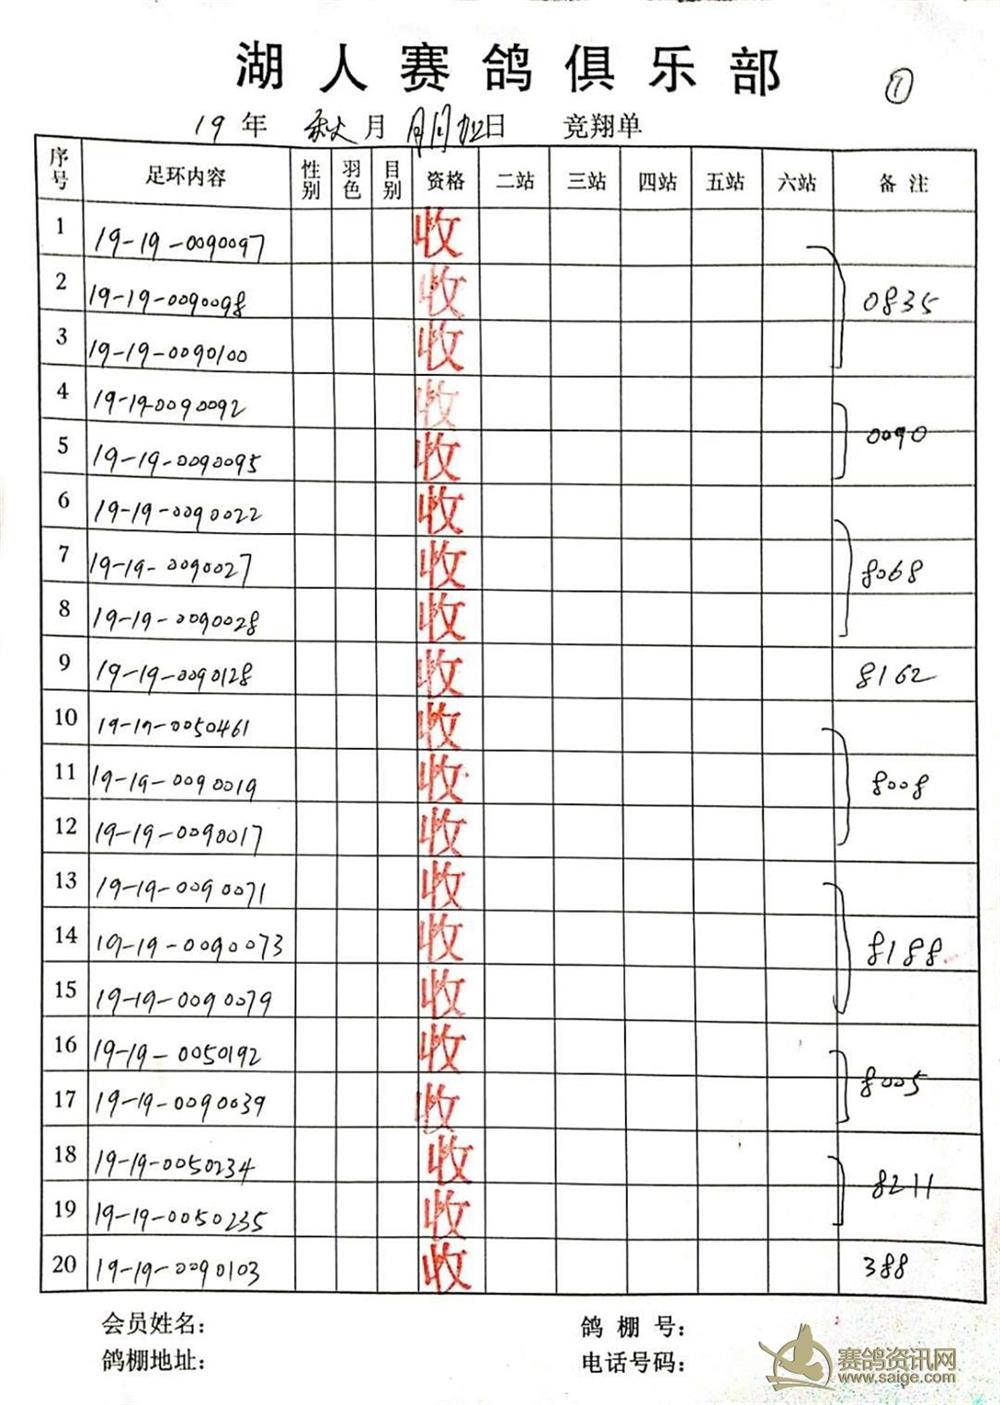 湖人赛鸽俱乐部
①
19年 秋月 日 竞翔单
序号 足环内容 性别 羽色 目别 资格 二站 三站 四站 五站 六站 备注
1 19-19-0090097 收
2 19-19-0090098 收 0835
3 19-19-0090100 收
4 19-19-0090092 收
0090
5 19-19-0090095 收
6 19-19-0090022 收
7 19-19-0090027 收 8068
8 19-19-0090028 收
9 19-19-0090128 收 8162
10 19-19-0050461 收
11 19-19-0090019 收 8008
12 19-19-0090017 收
13 19-19-0090071 收
14 19-19-0090073 收 8188
15 19-19-0090079 收
16 19-19-0050192 收
8005
17 19-19-0090039 收
18 19-19-0050234 收
8211
19 19-19-0050235 收
20 19-19-0090103 收 388
会员姓名： 鸽棚号：
鸽棚地址： 电话号码：
赛鸽资讯网
www.saige.com